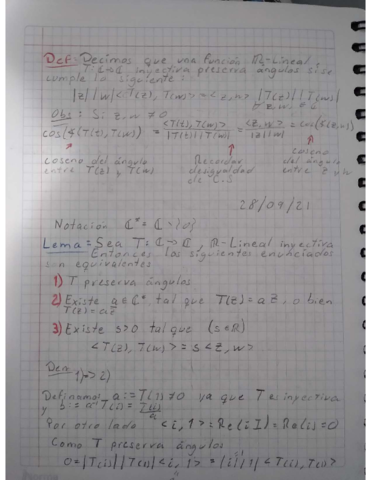 Def: Decimos que una función ℝ-Lineal
T: ℂ→ℂ inyectiva preserva ángulos si se
cumple lo siguiente:
|z||w|<T(z), T(w)> = <z,w> |T(z)||T(w)|
∀ z, w ∈ ℂ
Obs: Si z, w ≠ 0
cos(∢(T(z), T(w)) = <T(z), T(w)> / |T(z)||T(w)| = <z, w> / |z||w| = cos(∢(z,w))
coseno del ángulo entre T(z) y T(w)
Recordar desigualdad de C-S
coseno del ángulo entre z y w
28/09/21
Notación ℂ* = ℂ \ {0}
Lema: Sea T: ℂ→ℂ, ℝ-Lineal inyectiva
Entonces los siguientes enunciados
son equivalentes
1) T preserva ángulos
2) Existe a ∈ ℂ* tal que T(z) = az, o bien
T(z) = az̄
3) Existe s>0 tal que (s∈ℝ)
<T(z), T(w)> = s<z, w>
Dem 1)⇒2)
Definamos a := T(1) ≠ 0 ya que T es inyectiva
y b := a⁻¹T(i) = T(i)/a
Por otro lado <i, 1> = Re(i 1) = Re(i) = 0
Como T preserva ángulos
0 = |T(i)||T(1)|<i, 1> = |i||1|<T(i), T(1)>